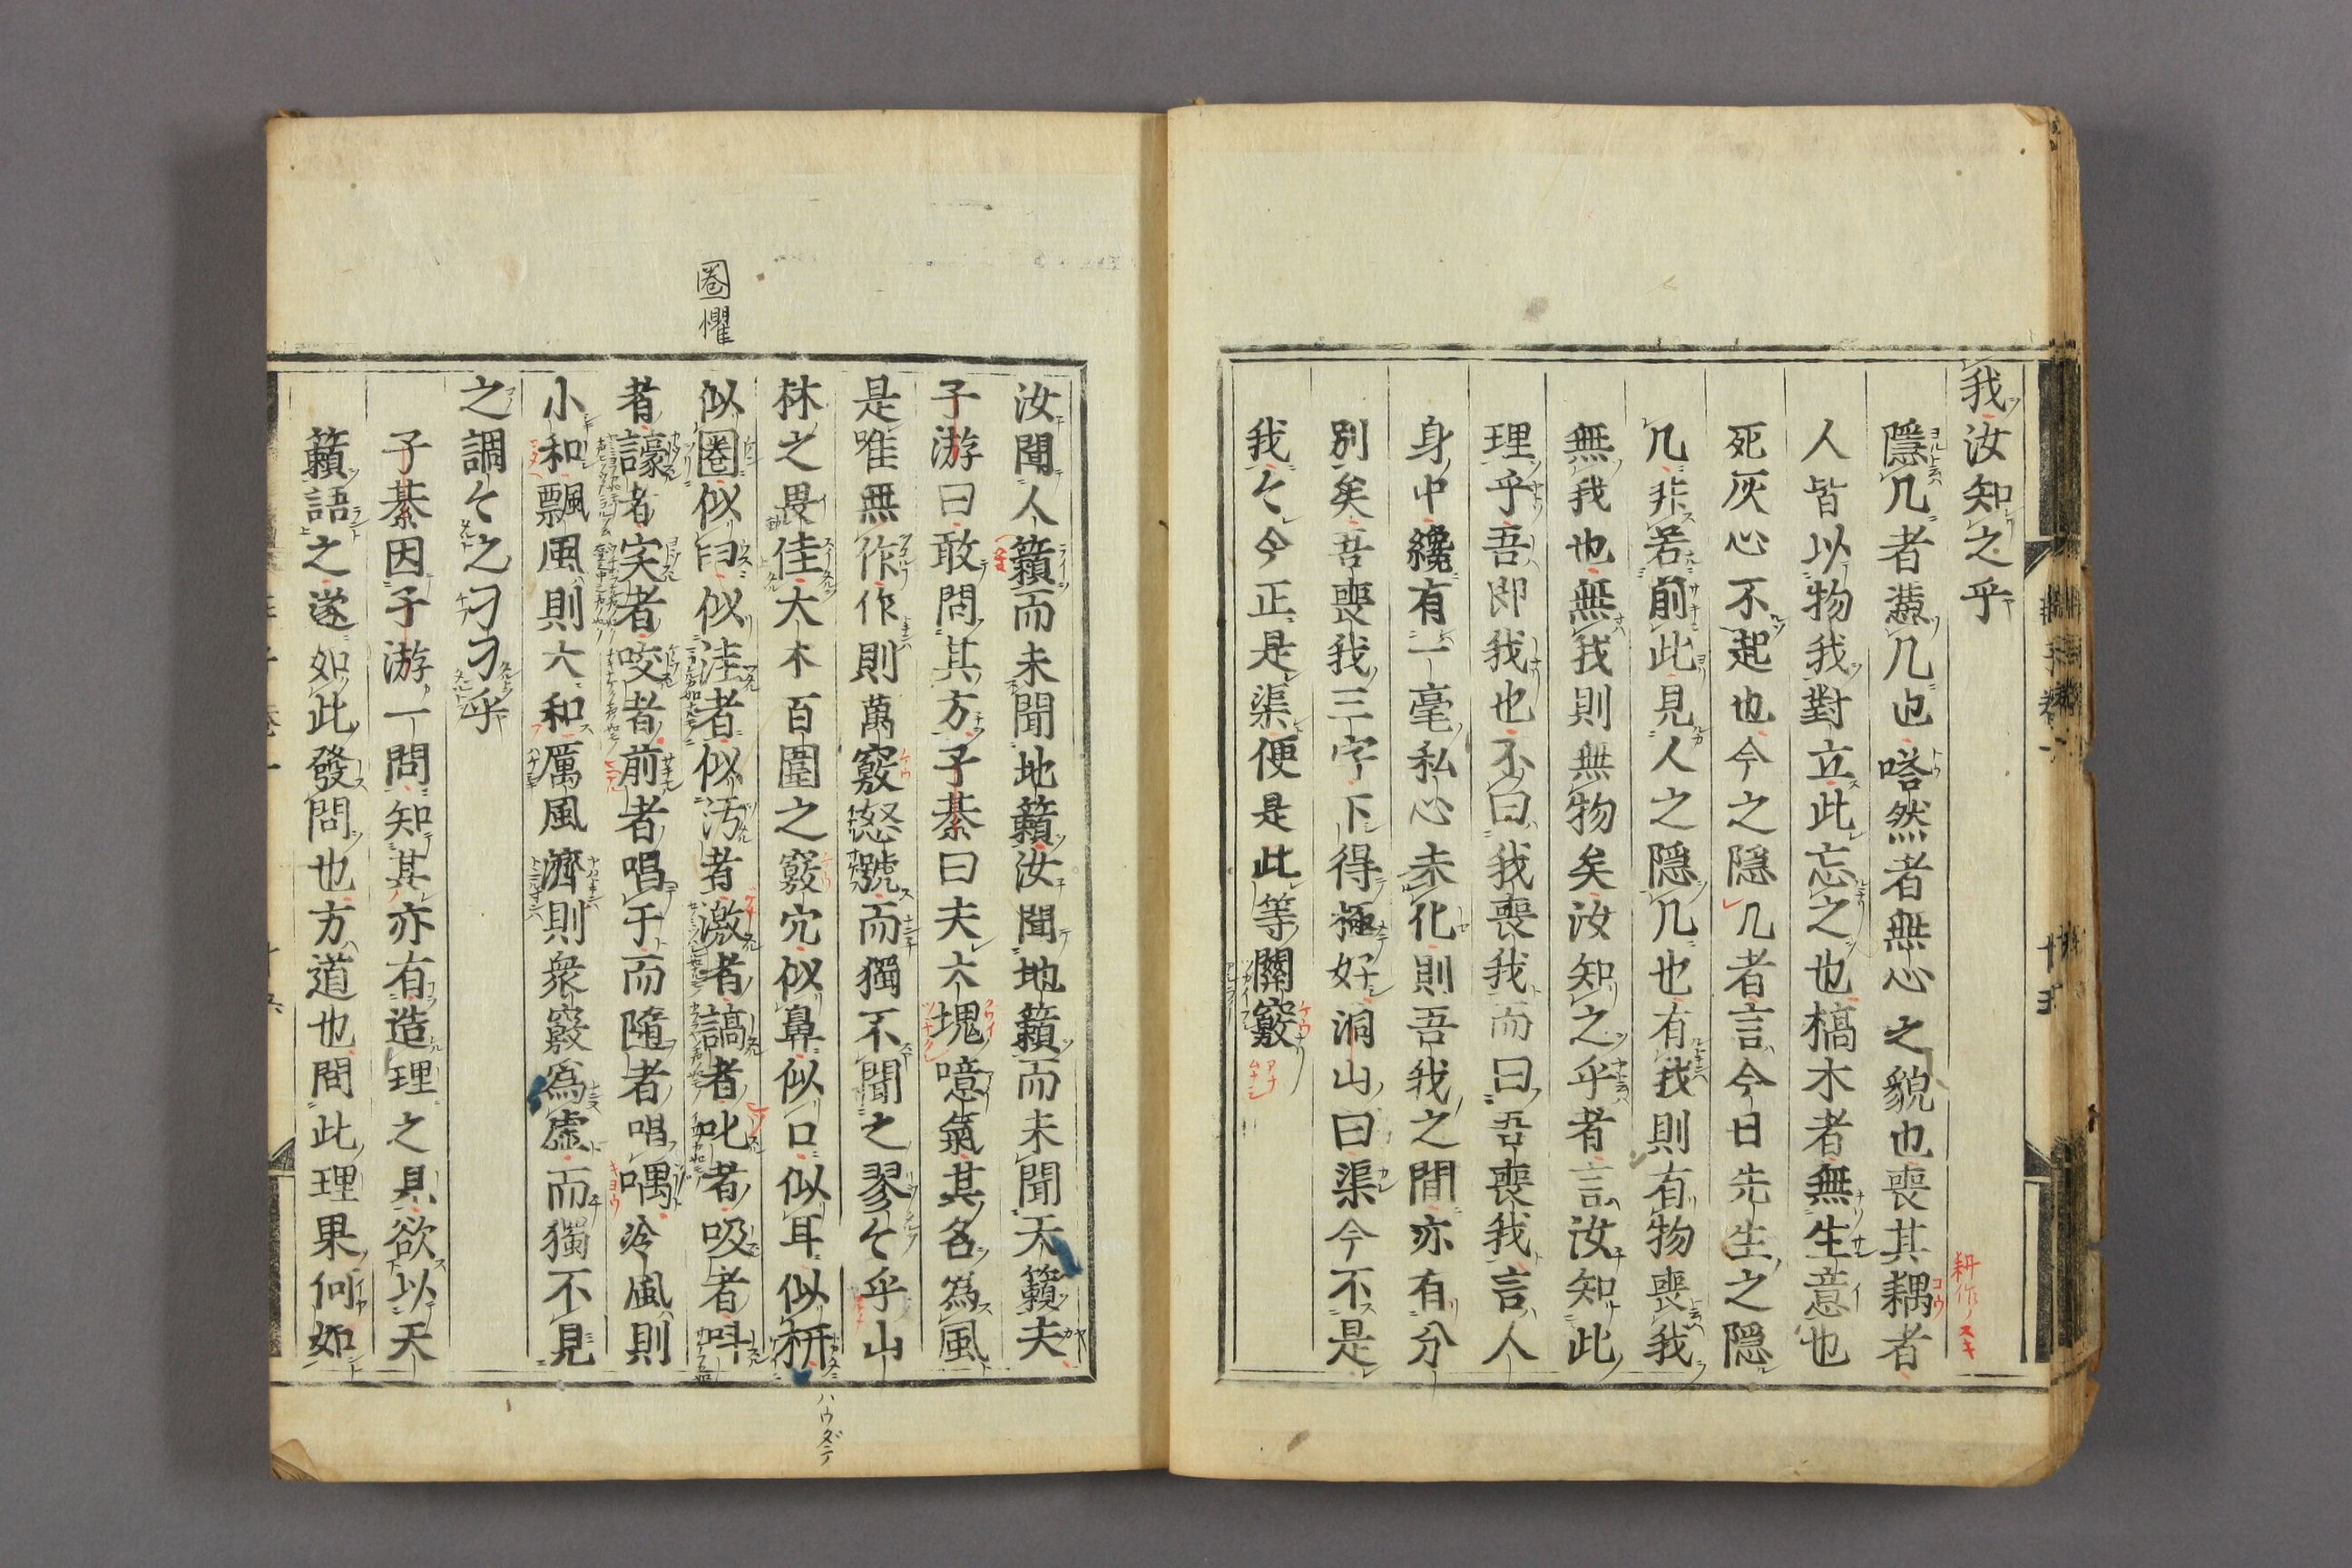 我汝知之乎
隱几者憑几也嗒然者無心之貌也喪其耦者
人皆以物我對立此忘之也槁木者無生意也
死灰心不起也今之隱几者言今日先生之隱
几非若前此見人之隱几也有我則有物喪我
無我也無我則無物矣汝知之乎者言汝知此
理乎吾即我也不曰我喪我而曰吾喪我言人
身中纔有一毫私心未化則吾我之間亦有分
別矣吾喪我三字下得極好洞山曰渠今不是
我我今正是渠便是此等關竅
耕作ノスキ
圈懼
汝聞人籟而未聞地籟汝聞地籟而未聞天籟夫
子游曰敢問其方子綦曰夫大塊噫氣其名為風
是唯無作作則萬竅怒號而獨不聞之翏々乎山
林之畏佳大木百圍之竅穴似鼻似口似耳似枅
似圈似臼似洼者似汚者激者謞者叱者吸者叫
者譹者宎者咬者前者唱于而隨者唱喁冷風則
小和飄風則大和厲風濟則衆竅為虛而獨不見
之調々之刁刁乎
子綦因子游一問知其亦有造理之見欲以天
籟語之遂如此發問也方道也問此理果何如
ハウダテ